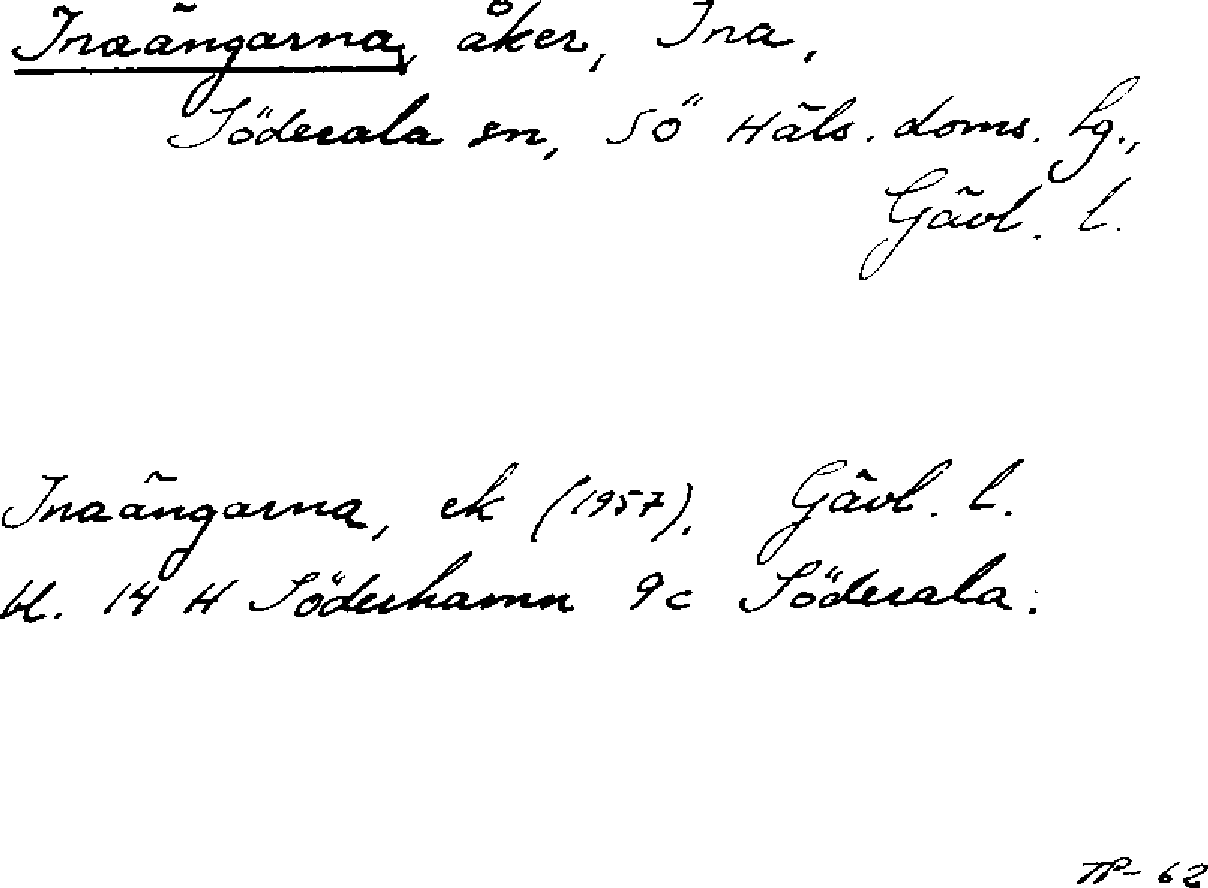 Inaängarna, åker, Ina,
Söderala sn, Sö Häls. doms. hg.,
Gävl. l.
Inaängarna, ek (1957). Gävl. l.
bl. 14 H Söderhamn 9c Söderala.
TP- 62